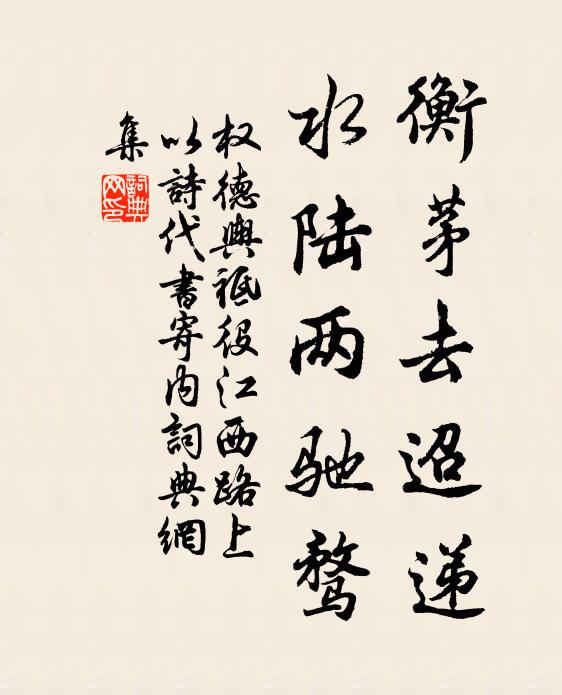 衡茅去迢递
水陆两驰骛
权德舆祗役江西路上
以詩代書寄内詞典網
集
詞典網印